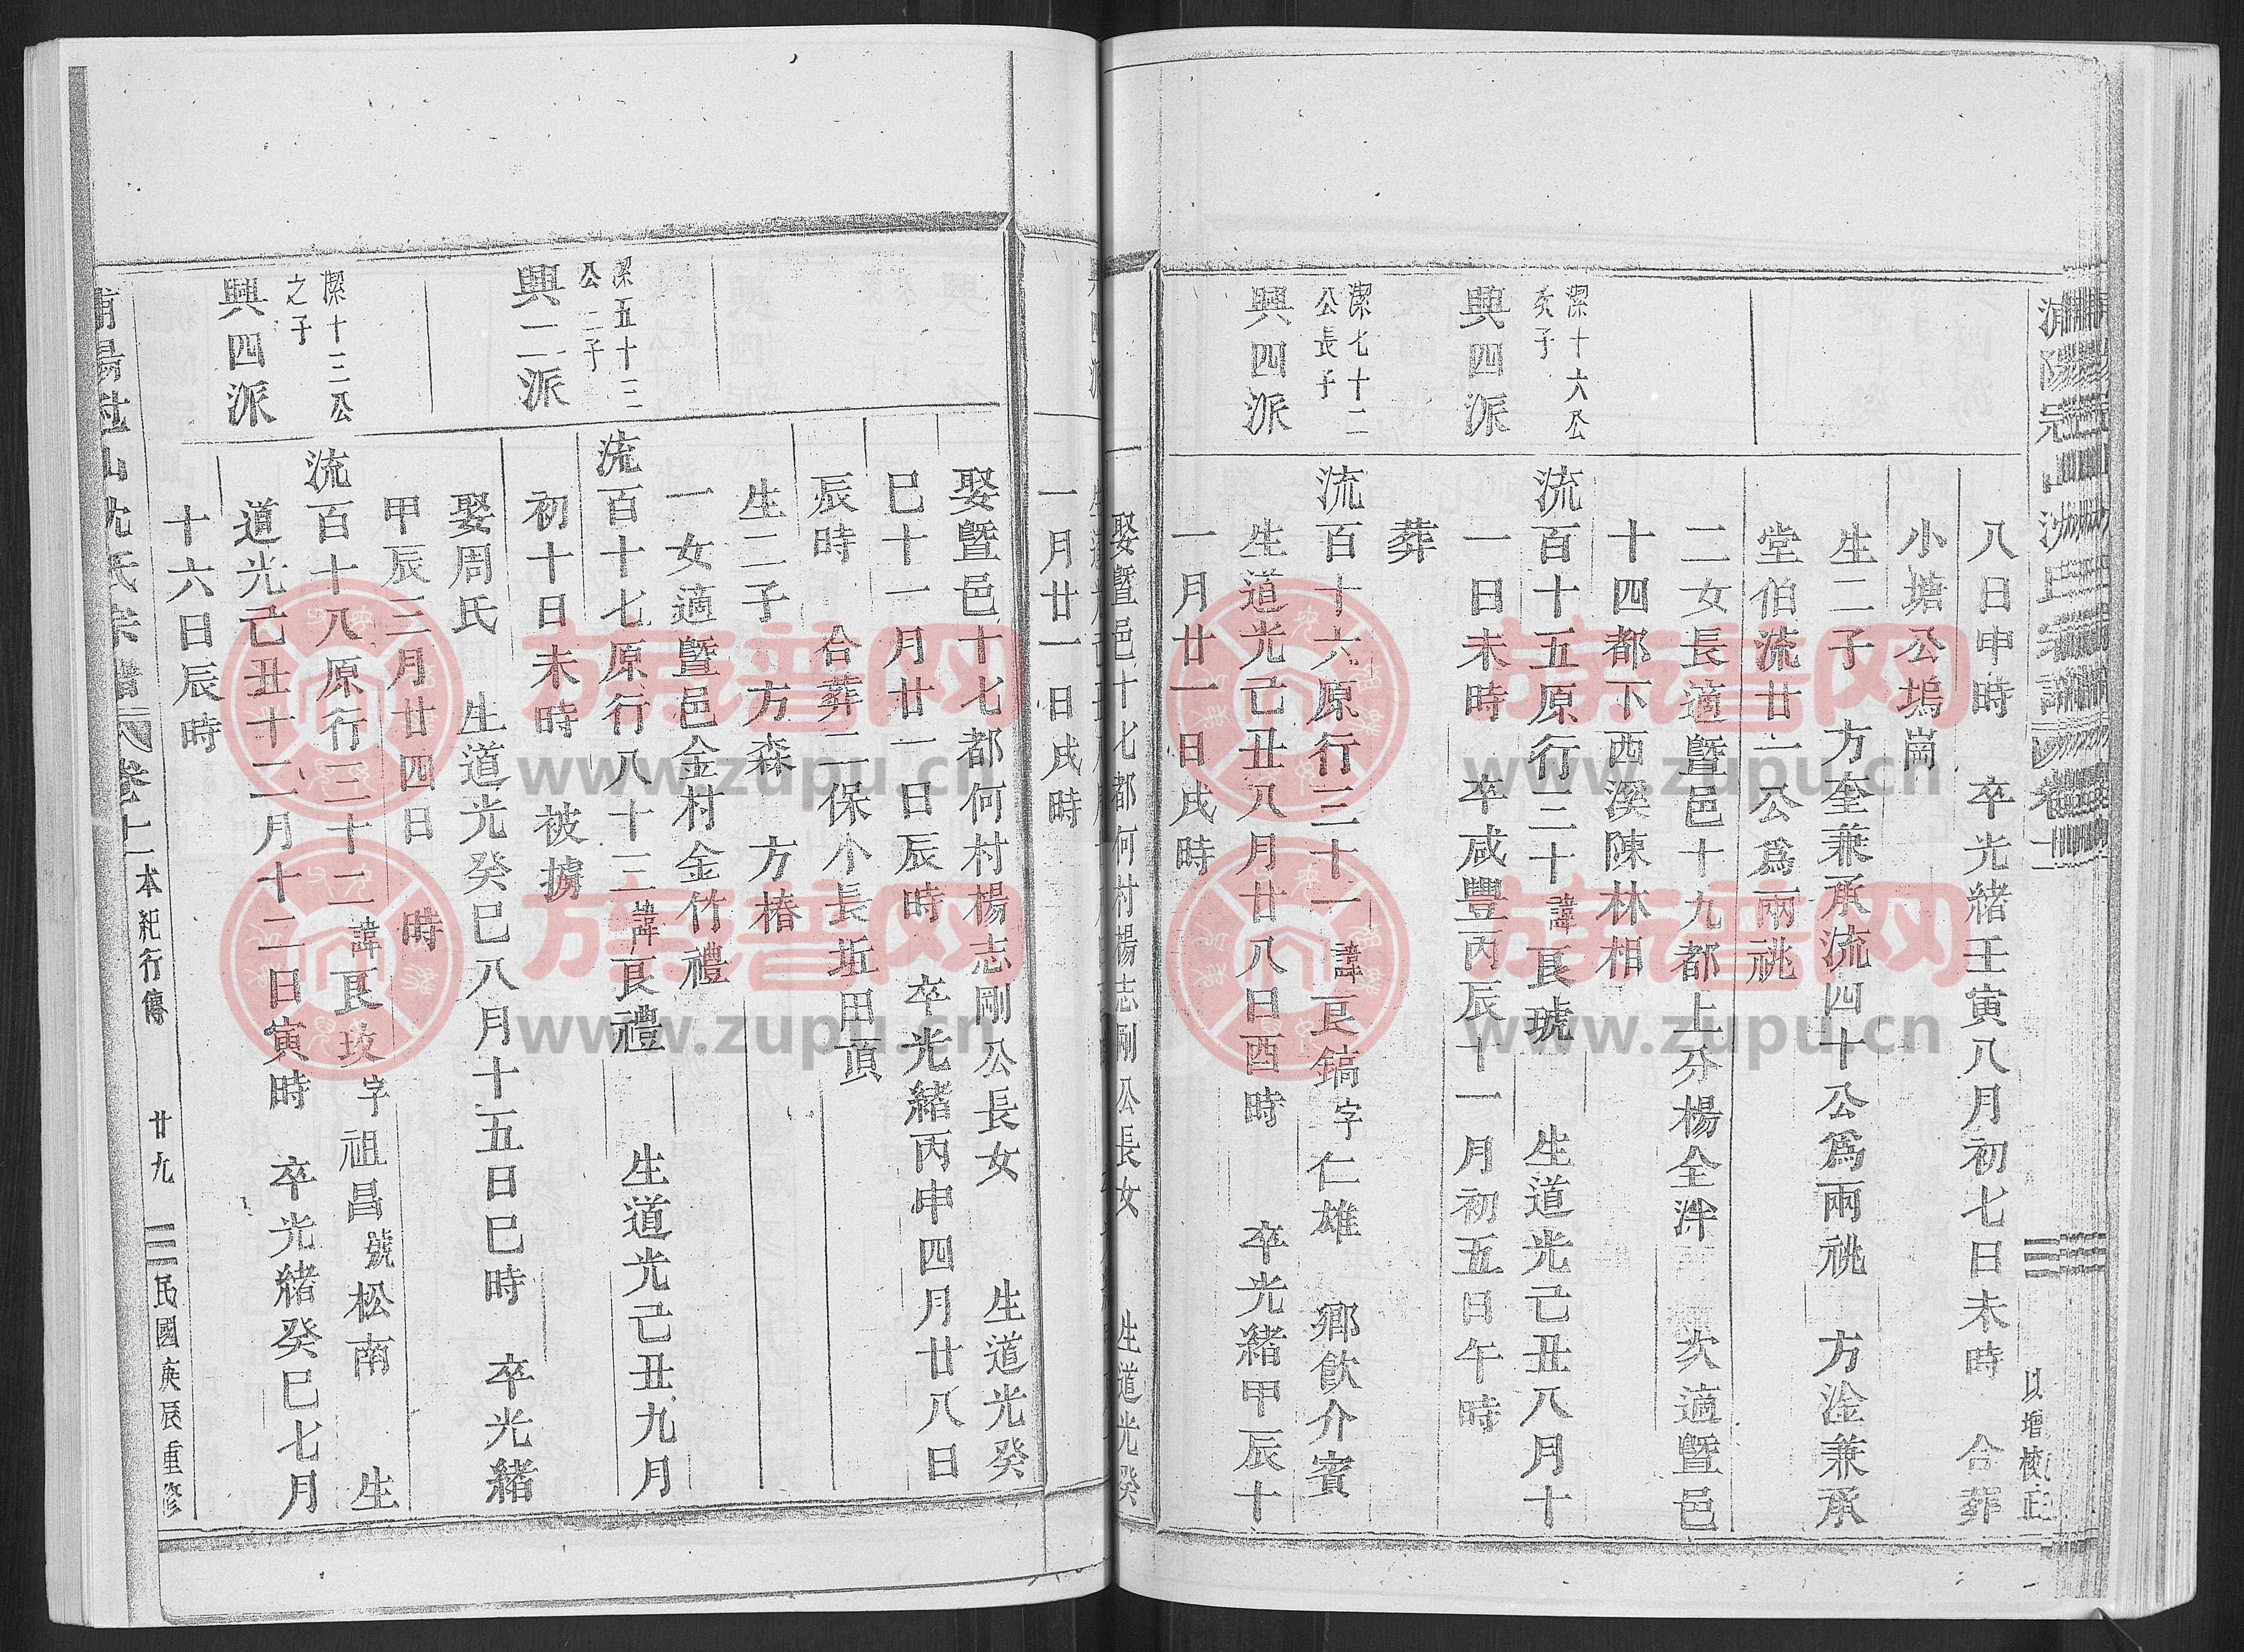 以增校正
八日申時　卒光緒壬寅八月初七日未時　合葬
小塘公塢崗
生二子　方奎兼承流四十公爲兩祧　方淦兼承
堂伯流廿二公爲兩祧
二女長適暨邑十九都上夼楊全洋　次適暨邑
十四都下西溪陳林相
潔十六公
亥子
興四派
流百十五原行二十諱良琥　生道光己丑八月十
一日未時　卒咸豐丙辰十一月初五日午時
葬
潔七十二
公長子
興四派
流百十六原行三十一諱良鎬字仁雄　鄉飲介賓
生道光己丑八月廿八日酉時　卒光緒甲辰十
一月廿一日戌時
娶暨邑十七都何村楊志剛公長女　生道光癸
一月廿一日戌時
娶暨邑十七都何村楊志剛公長女　生道光癸
巳十一月廿一日辰時　卒光緒丙申四月廿八日
辰時　合葬二保小長坵田頂
生二子　方森　方椿
一女適暨邑金村金竹禮
潔五十三
公二子
興二派
流百十七原行八十三諱良禮　生道光己丑九月
初十日未時　被擄
娶周氏　生道光癸巳八月十五日巳時　卒光緒
甲辰三月廿四日　時
潔十三公
之子
興四派
流百十八原行三十二諱良玫字祖昌號松南　生
道光己丑十二月十二日寅時　卒光緒癸巳七月
十六日辰時
卷上二　本紀行傳　廿九　民國庚辰重修
族譜网
www.zupu.cn
族譜网
www.zupu.cn
族譜网
www.zupu.cn
族譜网
www.zupu.cn